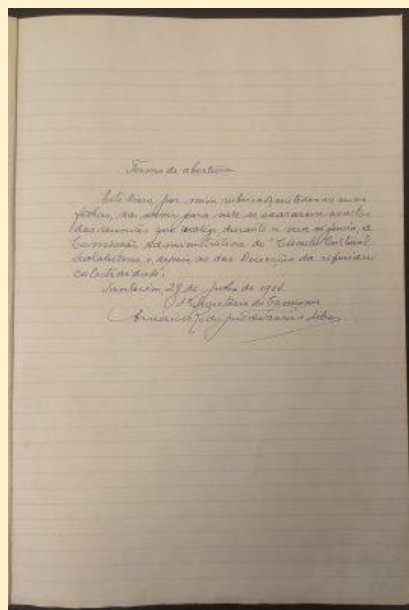 Termo de abertura
Este livro, por mim rubricado em todas as suas
folhas, vai servir para nele se exararem as actas
das reuniões que realize, durante a sua vigência, a
Comissão Administrativa do "Circulo Cultural
Scalabitano" e depois as das Direcções da referida
colectividade.
Santarém, 29 de Julho de 19
O 1º Secretário da Comissão